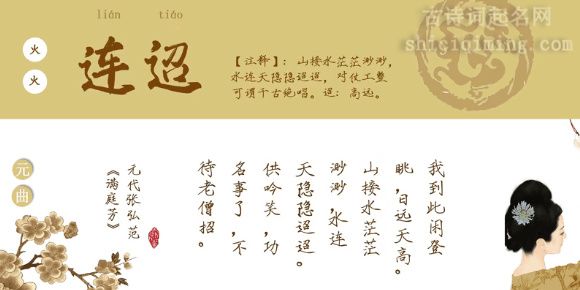 古诗词起名网
shiciqiming.com
lián tiáo
火
火
连迢
【注释】：山接水茫茫渺渺，
水连天隐隐迢迢，对仗工整
可谓千古绝唱。迢：高远。
元
曲
我到此闲登
眺，日远天高。
山接水茫茫
渺渺，水连
天隐隐迢迢。
供吟笑，功
名事了，不
待老僧招。
元代张弘范
《满庭芳》